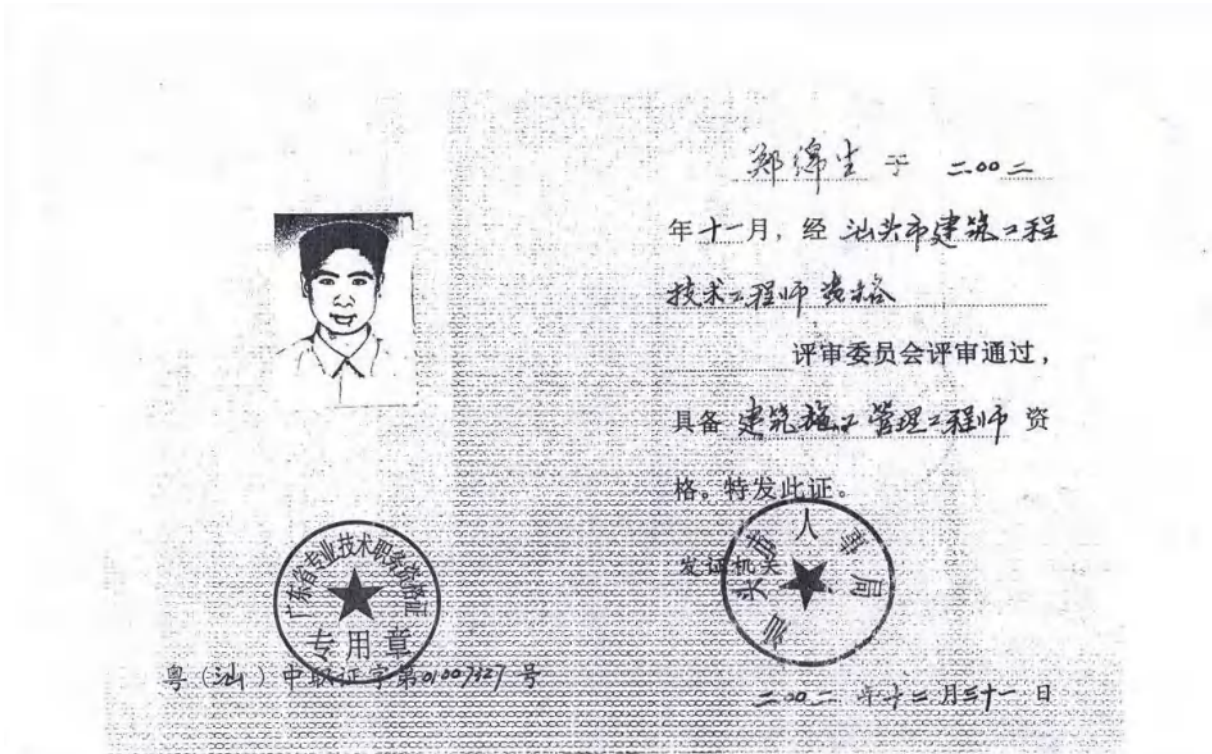 郑绵生于 二00二
年十一月，经 汕头市建筑工程
技术工程师资格
评审委员会评审通过，
具备 建筑施工管理工程师 资
格。特发此证。
发证机关
汕头市人事局
广东省专业技术职务资格证
专用章
粤（汕）中职证字第01007327号
二00二年十二月三十一日